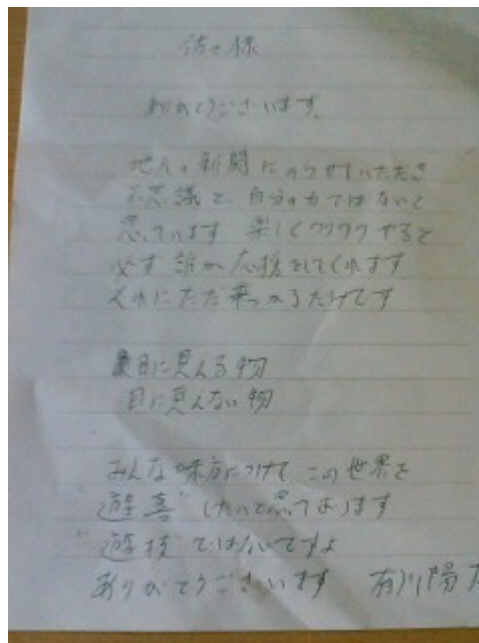 佐々様
ありがとうございます。
地元の新聞にのらせていただき
不思議と自分の力ではないと
思っています 楽しくワクワクすると
必ず誰か応援をしてくれます
それにただ乗っかるだけです
目に見える物
目に見えない物
みんな味方につけてこの世界を
"遊喜"したいと思っております
"遊技"ではないですよ
ありがとうございます 有川陽